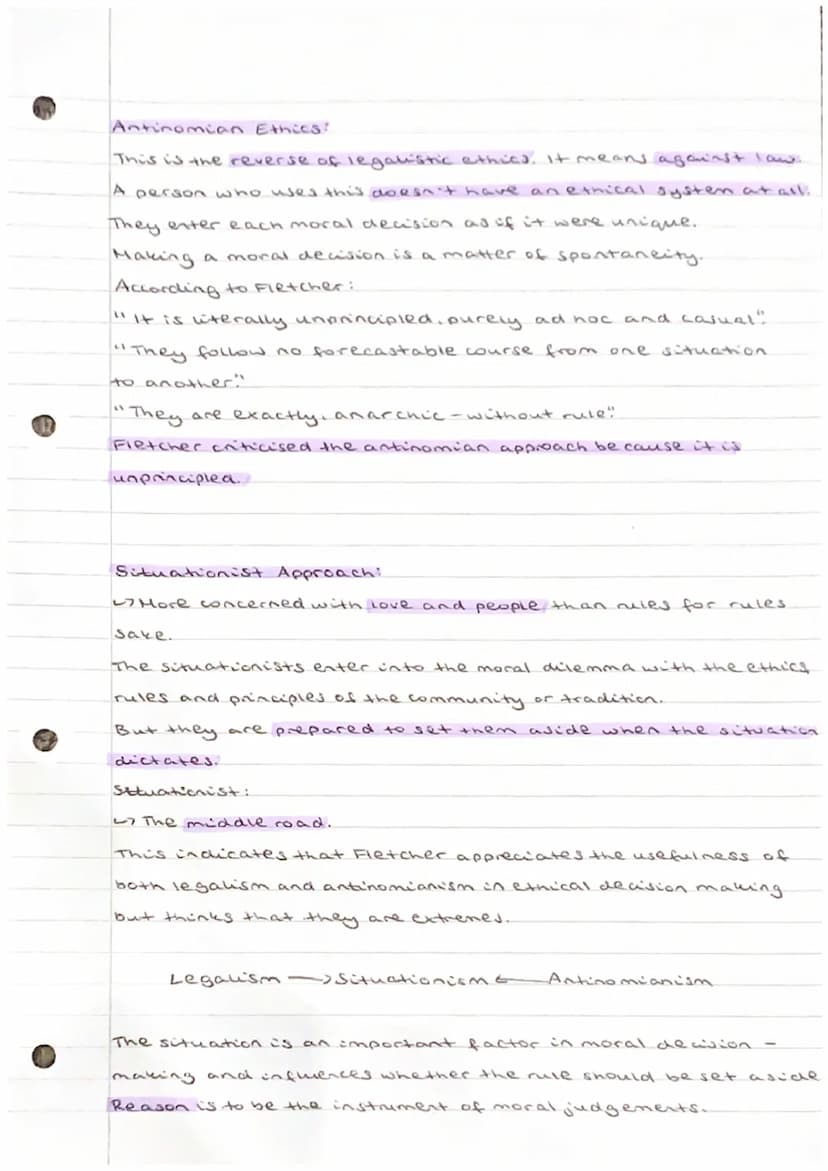 Antinomian Ethics:
This is the reverse of legalistic ethics. It means against law.
A person who uses this doesn't have an ethical system at all.
They enter each moral decision as if it were unique.
Making a moral decision is a matter of spontaneity.
According to Fletcher:
"It is literally unprincipled, purely ad hoc and casual".
"They follow no forecastable course from one situation
to another".
"They are exactly, anarchic - without rule".
Fletcher criticised the antinomian approach because it is
unprincipled.
Situationist Approach:
↳ More concerned with love and people than rules for rules
sake.
The situationists enter into the moral dilemma with the ethics,
rules and principles of the community or tradition.
But they are prepared to set them aside when the situation
dictates.
Situationist:
↳ The middle road.
This indicates that Fletcher appreciates the usefulness of
both legalism and antinomianism in ethical decision making
but thinks that they are extremes.
Legalism → Situationism ← Antinomianism
The situation is an important factor in moral decision -
making and influences whether the rule should be set aside
Reason is to be the instrument of moral judgements.